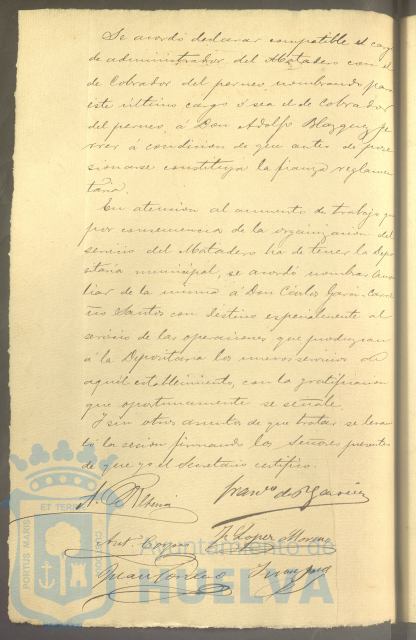 Se acordó declarar compatible el cargo
de administrador del Matadero con el
de Cobrador del perneo, nombrando para
este último cargo ó sea el de Cobrador
del perneo, á Don Adolfo Blazquez Fe
rrer á condicion de que antes de pose
sionarse constituya la fianza reglamen
taria.
En atencion al aumento de trabajo que
por consecuencia de la organizacion del
servicio del Matadero ha de tener la Depo
sitaría municipal, se acordó nombrar Auxi
liar de la misma á Don Cárlos Garcia Carre
ño Santos con destino especialmente al
servicio de las operaciones que produzcan
á la Depositaria los nuevos servicios de
aquel establecimiento, con la gratificacion
que oportunamente se señale.
Y sin otros asuntos de que tratar se levan
tó la sesion firmando los Señores presentes
de que yo el Secretario certifico.
Franco de P García
Lopez Moreno
PORTUS MARIS ET TERRAE CUSTODIA
Ayuntamiento de
HUELVA